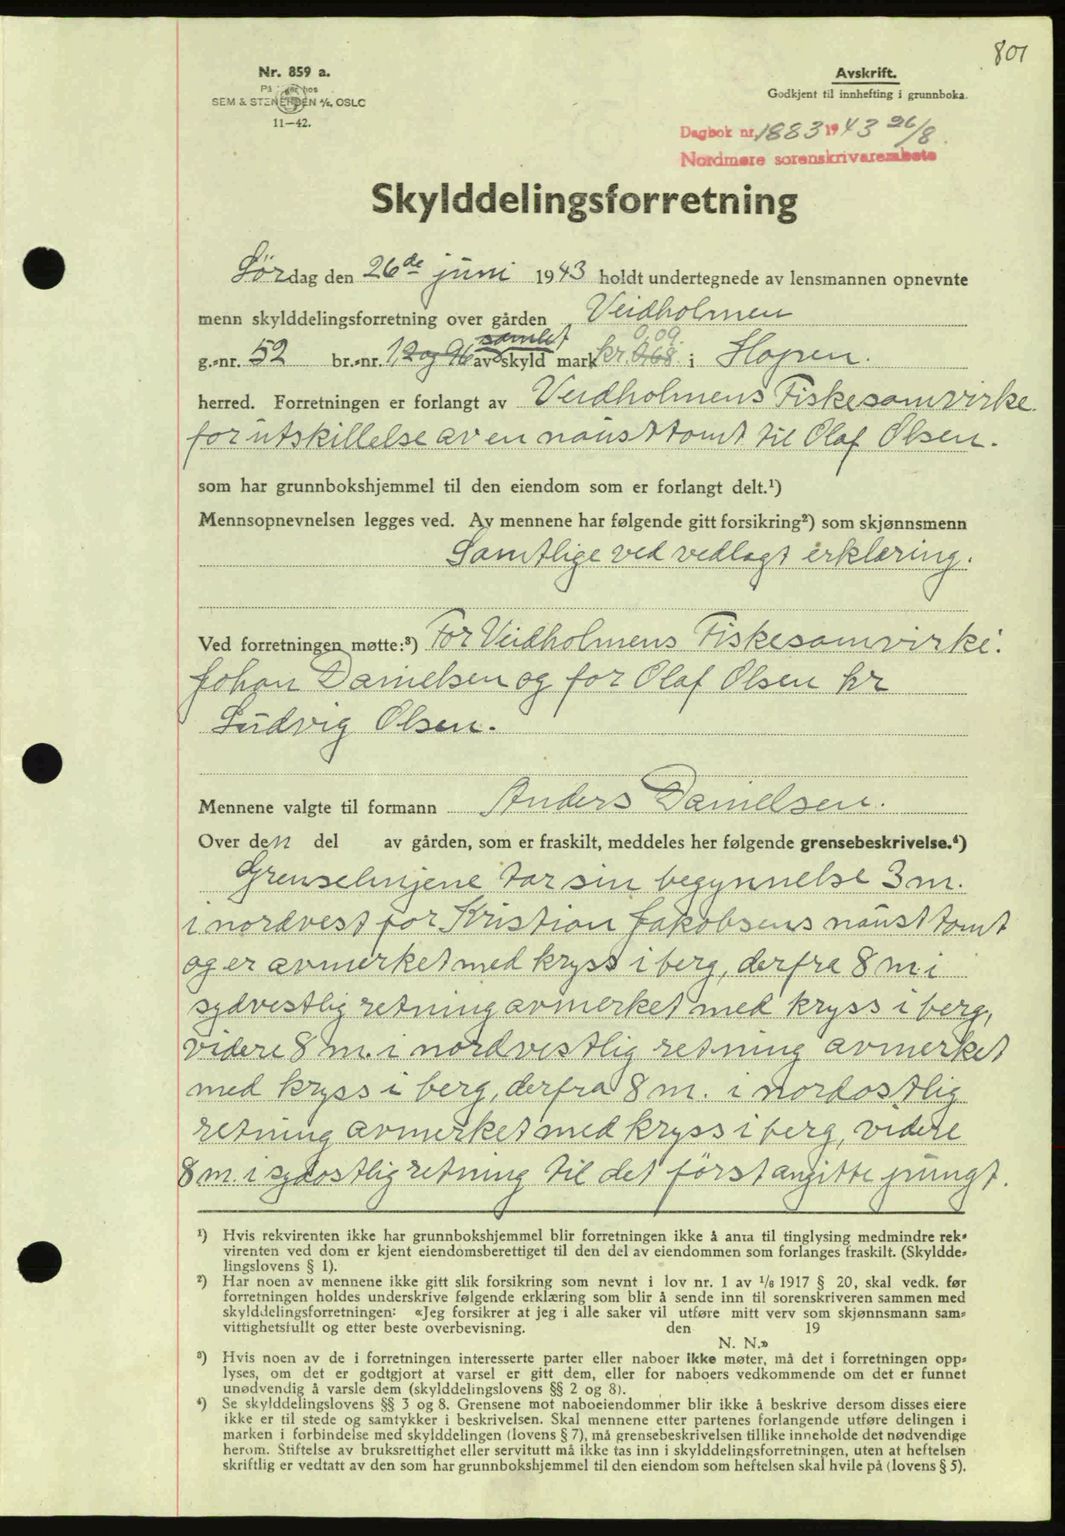 801
Nr. 859 a.
På lager hos
SEM & STENERSEN A/S, OSLO
11-42.
Avskrift.
Godkjent til innhefting i grunnboka.
Dagbok nr. 1883 1943 26/8
Nordmøre sorenskriverembete
Skylddelingsforretning
Lördag den 26de juni 1943 holdt undertegnede av lensmannen opnevnte
menn skylddelingsforretning over gården Veidholmen
samlet 0,09
g.-nr. 52 br.-nr. 1,2 og 96 av skyld mark kr. 0,68 i Hopen.
herred. Forretningen er forlangt av Veidholmens Fiskesamvirke
for utskillelse av en nausttomt til Olaf Olsen.
som har grunnbokshjemmel til den eiendom som er forlangt delt.¹)
Mennsopnevnelsen legges ved. Av mennene har følgende gitt forsikring²) som skjønnsmenn
Samtlige ved vedlagt erklæring.
Ved forretningen møtte:³) For Veidholmens Fiskesamvirke:
Johan Danielsen og for Olaf Olsen hr
Ludvig Olsen.
Mennene valgte til formann Anders Danielsen.
Over den del av gården, som er fraskilt, meddeles her følgende grensebeskrivelse.⁴)
Grenselinjene tar sin begynnelse 3 m.
i nordvest for Kristian Jakobsens nausttomt
og er avmerket med kryss i berg, derfra 8 m. i
sydvestlig retning avmerket med kryss i berg,
videre 8 m. i nordvestlig retning avmerket
med kryss i berg, derfra 8 m. i nordostlig
retning avmerket med kryss i berg, videre
8 m. i sydostlig retning til det först angitte pungt.
¹) Hvis rekvirenten ikke har grunnbokshjemmel blir forretningen ikke å anta til tinglysing medmindre rek-
virenten ved dom er kjent eiendomsberettiget til den del av eiendommen som forlanges fraskilt. (Skyldde-
lingslovens § 1).
²) Har noen av mennene ikke gitt slik forsikring som nevnt i lov nr. 1 av 1/8 1917 § 20, skal vedk. før
forretningen holdes underskrive følgende erklæring som blir å sende inn til sorenskriveren sammen med
skylddelingsforretningen: «Jeg forsikrer at jeg i alle saker vil utføre mitt verv som skjønnsmann sam-
vittighetsfullt og etter beste overbevisning. den 19
N. N.»
³) Hvis noen av de i forretningen interesserte parter eller naboer ikke møter, må det i forretningen opp-
lyses, om det er godtgjort at varsel er gitt dem, eller for naboers vedkommende om det er funnet
unødvendig å varsle dem (skylddelingslovens §§ 2 og 8).
⁴) Se skylddelingslovens §§ 3 og 8. Grensene mot naboeiendommer blir ikke å beskrive dersom disses eiere
ikke er til stede og samtykker i beskrivelsen. Skal mennene etter partenes forlangende utføre delingen i
marken i forbindelse med skylddelingen (lovens § 7), må grensebeskrivelsen tillike inneholde det nødvendige
herom. Stiftelse av bruksrettighet eller servitutt må ikke tas inn i skylddelingsforretningen, uten at heftelsen
skriftlig er vedtatt av den som har grunnbokshjemmel til den eiendom som heftelsen skal hvile på (lovens § 5).